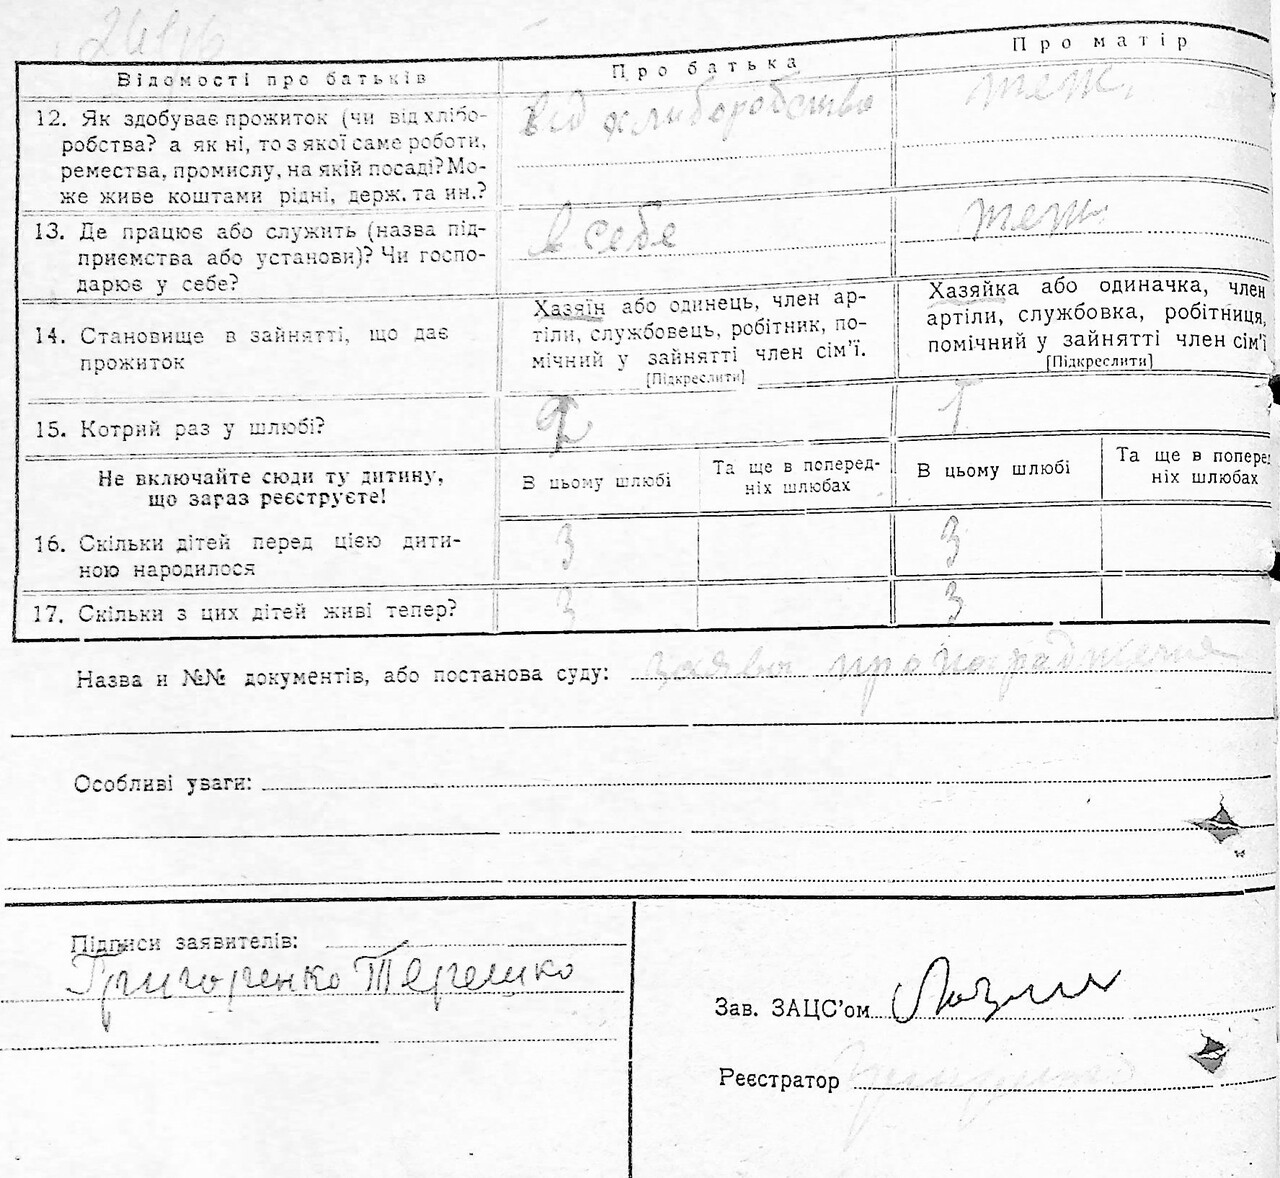 Відомості про батьків
Про батька
Про матір
12. Як здобуває прожиток (чи від хлібо-
робства? а як ні, то з якої саме роботи,
ремества, промислу, на якій посаді? Мо-
же живе коштами рідні, держ. та ин.?
від хлиборобства
теж.
13. Де працює або служить (назва під-
приємства або установи)? Чи госпо-
дарює у себе?
в себе
теж.
14. Становище в зайнятті, що дає
прожиток
Хазяїн або одинець, член ар-
тіли, службовець, робітник, по-
мічний у зайнятті член сім'ї.
[Підкреслити]
Хазяйка або одиначка, член
артіли, службовка, робітниця,
помічний у зайнятті член сім'ї
[Підкреслити]
15. Котрий раз у шлюбі?
1
Не включайте сюди ту дитину,
що зараз реєструєте!
В цьому шлюбі
Та ще в поперед-
ніх шлюбах
В цьому шлюбі
Та ще в поперед
ніх шлюбах
16. Скільки дітей перед цією дити-
ною народилося
3
3
17. Скільки з цих дітей живі тепер?
3
3
Назва и №№ документів, або постанова суду: заява про
Особливі уваги:
Підписи заявителів:
Григоренко
Зав. ЗАЦС'ом
Реєстратор